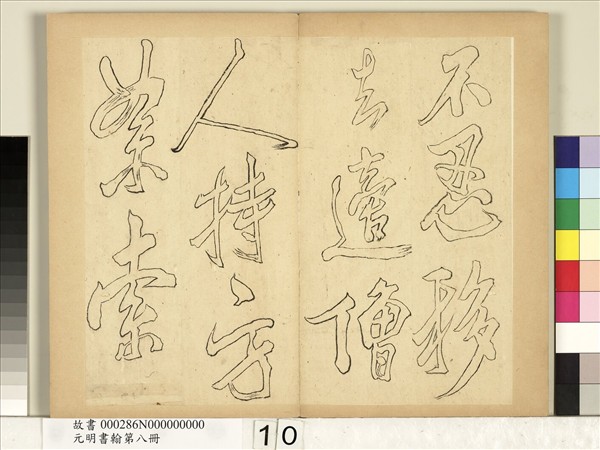 不忍移
去適僧
人持方
絮索
故書 000286N000000000
元明書翰第八冊
10